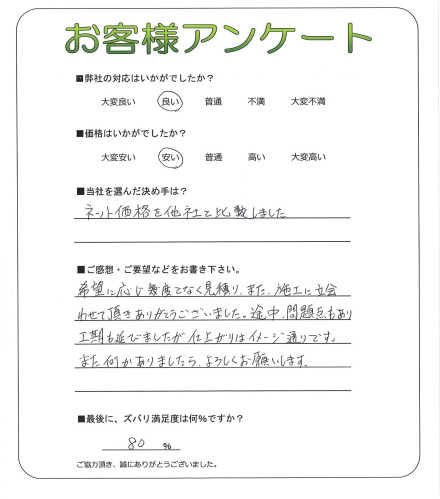 お客様アンケート
■弊社の対応はいかがでしたか？
大変良い 良い 普通 不満 大変不満
■価格はいかがでしたか？
大変安い 安い 普通 高い 大変高い
■当社を選んだ決め手は？
ネット価格を他社と比較しました
■ご感想・ご要望などをお書き下さい。
希望に応じ幾度となく見積り、また、施工に立会
わせて頂きありがとうございました。途中、問題点もあり
工期も延びましたが仕上がりはイメージ通りです。
また何かありましたら、よろしくお願いします。
■最後に、ズバリ満足度は何%ですか？
80 %
ご協力頂き、誠にありがとうございました。